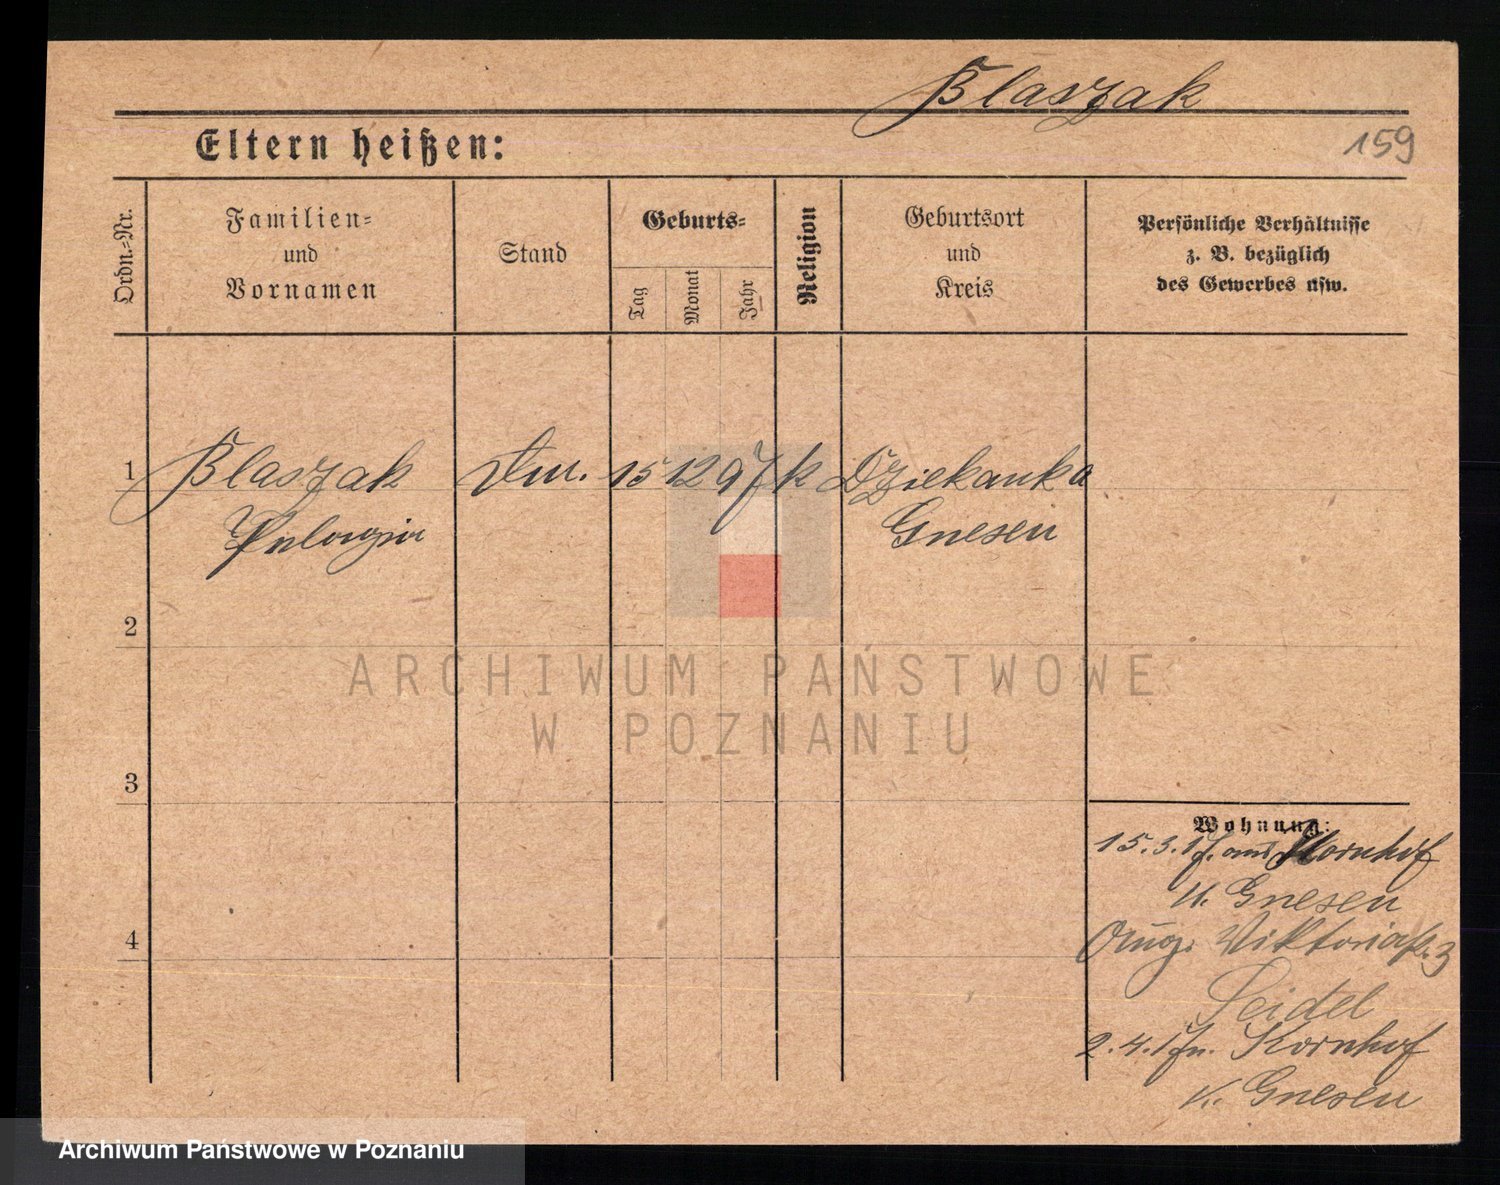 Blaszak
159
Eltern heißen:
Ordn.-Nr.
Familien-
und
Vornamen
Stand
Geburts-
Tag
Monat
Jahr
Religion
Geburtsort
und
Kreis
Persönliche Verhältnisse
z. B. bezüglich
des Gewerbes usw.
1 Blaszak 15 12 97 k Dziekanka
Pelagia Gnesen
2
ARCHIWUM PAŃSTWOWE
W POZNANIU
3
Wohnung:
15.3.17. aus Kornhof
K. Gnesen
Viktoriastr. 3
Seidel
2.4.17 n. Kornhof
K. Gnesen
4
Archiwum Państwowe w Poznaniu